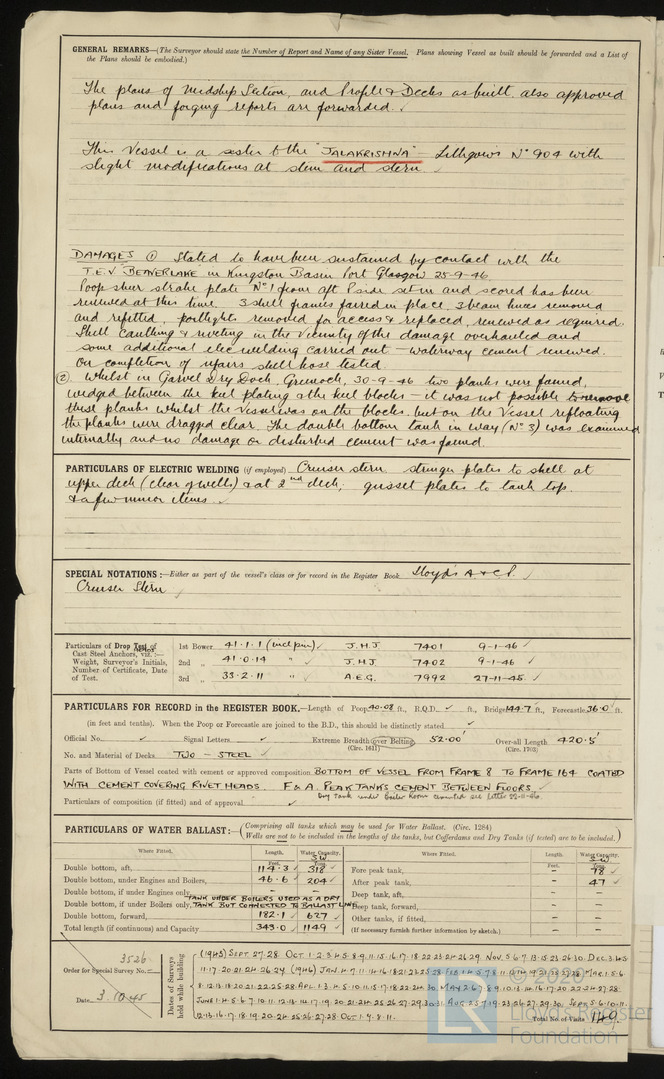 GENERAL REMARKS—(The Surveyor should state the Number of Report and Name of any Sister Vessel. Plans showing Vessel as built should be forwarded and a List of
the Plans should be embodied.)
The plans of Midship Section, and Profile & Decks as built. also approved
plans and forging reports are forwarded. ✓
This Vessel is a sister to the "JALAKRISHNA" – Lithgows No 904 with
slight modifications at stem and stern. ✓
DAMAGES ① Stated to have been sustained by contact with the
T.E.V. BEAVERLAKE in Kingston Basin Port Glasgow 25-9-46.
Poop sheer strake plate No 1 from aft P side set in and scored has been
renewed at this time. 3 shell frames faired in place, 3 beam knees removed
and refitted, portlights removed for access & replaced, renewed as required.
Shell caulking & riveting in the vicinity of the damage overhauled and
some additional elec welding carried out – waterway cement renewed.
On completion of repairs shell hose tested.
② Whilst in Garvel Dry Dock. Greenock, 30-9-46 two planks were found,
wedged between the keel plating & the keel blocks – it was not possible to remove
these planks whilst the Vessel was on the blocks. but on the Vessel refloating
the planks were dragged clear. The double bottom tank in way (No 3) was examined
internally and no damage or disturbed cement was found.
PARTICULARS OF ELECTRIC WELDING (if employed) Cruiser stern. stringer plates to shell at
upper deck (clear of wells) & at 2nd deck; gusset plates to tank top.
& a few minor items. ✓
SPECIAL NOTATIONS:—Either as part of the vessel's class or for record in the Register Book. Lloyd's A & C P. ✓
Cruiser Stern ✓
Particulars of Drop Test of
Cast Steel Anchors, viz.:—
Weight, Surveyor's Initials,
Number of Certificate, Date
of Test.
1st Bower 41.1.1 (incl pin) ✓ J.H.J 7401 9-1-46 ✓
2nd „ 41.0.14 " ✓ J.H.J 7402 9-1-46 ✓
3rd „ 33.2.11 " ✓ A.E.G. 7992 27-11-45. ✓
PARTICULARS FOR RECORD in the REGISTER BOOK.—Length of Poop 40.08 ft., R.Q.D. ✓ ft., Bridge 144.7 ft., Forecastle 36.0 ft.
(in feet and tenths). When the Poop or Forecastle are joined to the B.D., this should be distinctly stated ✓
Official No. ✓ Signal Letters ✓ Extreme Breadth over Belting (Circ. 1611) 52.00' Over-all Length (Circ. 1703) 420.5'
No. and Material of Decks TWO – STEEL ✓
Parts of Bottom of Vessel coated with cement or approved composition BOTTOM OF VESSEL FROM FRAME 8 TO FRAME 164 COATED
WITH CEMENT COVERING RIVET HEADS. F & A. PEAK TANKS CEMENT BETWEEN FLOORS ✓
Dry Tank under Boiler Room cemented see letter
Particulars of composition (if fitted) and of approval ✓
PARTICULARS OF WATER BALLAST:—(Comprising all tanks which may be used for Water Ballast. (Circ. 1284)
Wells are not to be included in the lengths of the tanks, but Cofferdams and Dry Tanks (if tested) are to be included.)
Where Fitted. Length. Water Capacity. Where Fitted. Length. Water Capacity.
Feet. S.W Tons. Feet. S.W Tons.
Double bottom, aft, 114.3 ✓ 318 ✓ Fore peak tank, – 78 ✓
Double bottom, under Engines and Boilers, 46.6 ✓ 204 ✓ After peak tank, – 47 ✓
Double bottom, if under Engines only, – Deep tank, aft, –
TANK UNDER BOILERS USED AS A DRY
Double bottom, if under Boilers only, TANK BUT CONNECTED TO BALLAST LINE Deep tank, forward, –
Double bottom, forward, 182.1 ✓ 627 ✓ Other tanks, if fitted, –
Total length (if continuous) and Capacity 343.0 ✓ 1149 ✓ (If necessary furnish further information by sketch.)
3526
Order for Special Survey No.
Date 3.10.45
Dates of Surveys held while building
(1945) SEPT. 27.28 OCT. 1.2.3.4.5.8.9.11.15.16.17.18.22.23.24.26.29
Total No. of Visits 149.
© 2020
LR
Lloyd's Register
Foundation